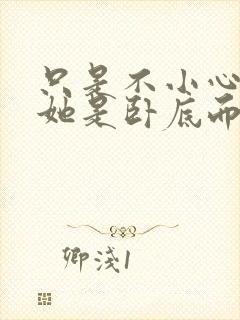 只是不小心
她是卧底而
卿淺1